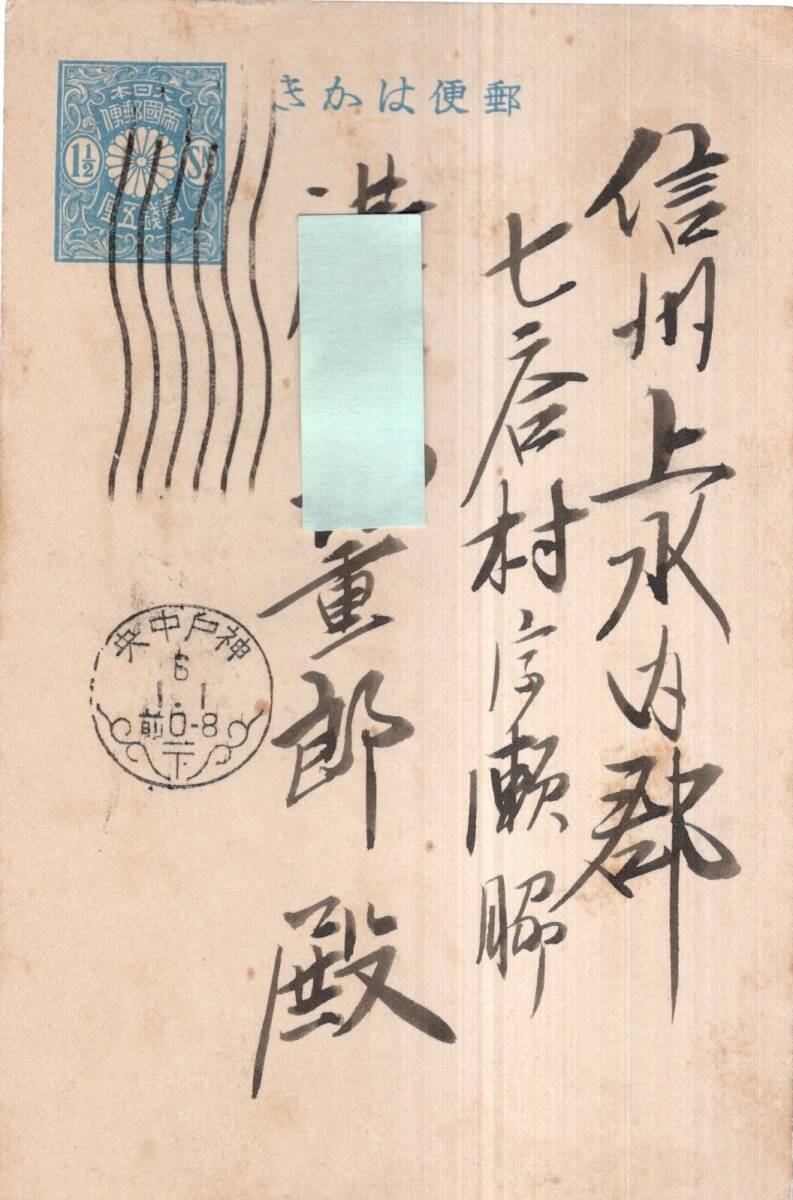 郵便はかき
大日本
帝國郵便
1½ SN
壹錢五厘
信州上水内郡
七二会村字瀬脇
重郎殿
神戸中央
6
1.1
前0-8